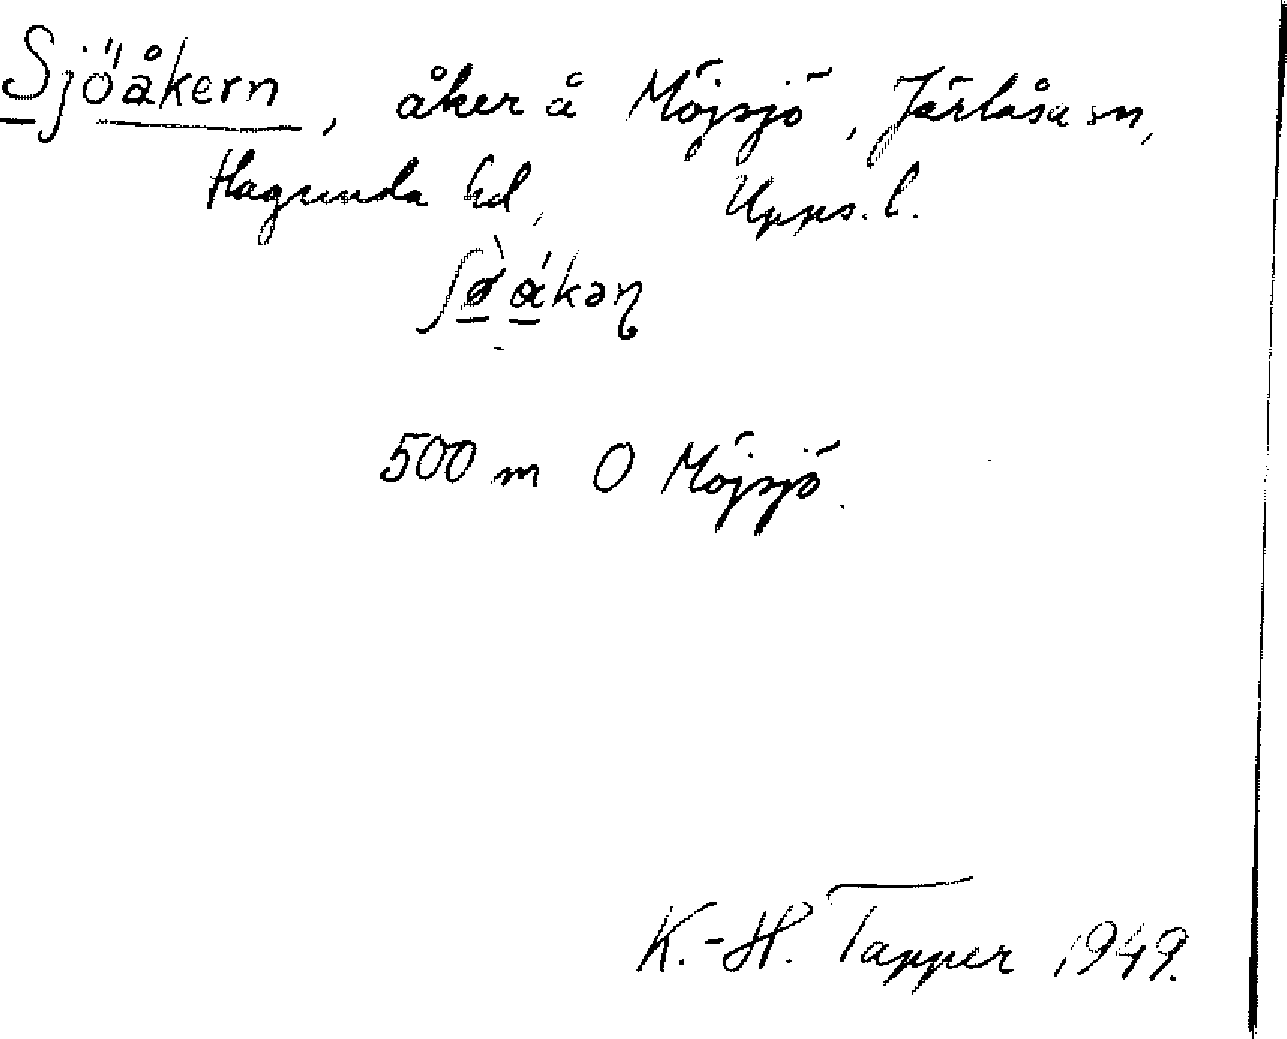 Sjöåkern, åker å Möjsjö, Järlåsa sn,
Hagunda hd, Upps. l.
500 m O Möjsjö.
K.-H. Tapper 1949.